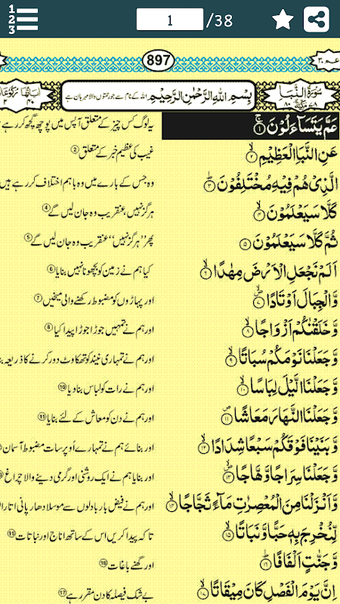 1 /38
897
عم ٣٠
سُوْرَةُ النَّبَاِ بِسْمِ اللهِ الرَّحْمٰنِ الرَّحِيْمِ اللہ کے نام سے جو رحمتوں والا مہربان ہے
عَمَّ يَتَسَآءَلُوْنَ ۱ یہ لوگ کس چیز کے متعلق آپس میں پوچھ گچھ کر رہے
عَنِ النَّبَاِ الْعَظِيْمِ ۲ غیب کی عظیم خبر کے متعلق ②
الَّذِيْ هُمْ فِيْهِ مُخْتَلِفُوْنَ ۳ وہ جس کے بارے میں وہ باہم اختلاف کر رہے ہیں
كَلَّا سَيَعْلَمُوْنَ ۴ ہرگز نہیں، عنقریب وہ جان لیں گے ④
ثُمَّ كَلَّا سَيَعْلَمُوْنَ ۵ پھر "ہرگز نہیں" عنقریب وہ جان لیں گے ⑤
اَلَمْ نَجْعَلِ الْاَرْضَ مِهٰدًا ۶ کیا ہم نے زمین کو بچھونا نہیں بنایا ⑥
وَّالْجِبَالَ اَوْتَادًا ۷ اور پہاڑوں کو مضبوط رکھنے والی میخیں ⑦
وَّخَلَقْنٰكُمْ اَزْوَاجًا ۸ اور ہم نے تمہیں جوڑا جوڑا پیدا کیا ⑧
وَّجَعَلْنَا نَوْمَكُمْ سُبَاتًا ۹ اور ہم نے تمہاری نیند کو تھکاوٹ دور کرنے کا ذریعہ بنا
وَّجَعَلْنَا الَّيْلَ لِبَاسًا ۱۰ اور ہم نے رات کو لباس بنا دیا ⑩
وَّجَعَلْنَا النَّهَارَ مَعَاشًا ۱۱ اور ہم نے دن کو معاش کے لئے بنایا ⑪
وَّبَنَيْنَا فَوْقَكُمْ سَبْعًا شِدَادًا ۱۲ اور بنائے ہم نے تمہارے اُوپر سات مضبوط آسمان
وَّجَعَلْنَا سِرَاجًا وَّهَّاجًا ۱۳ اور بنایا ہم نے ایک روشنی اور گرمی دینے والا چراغ
وَّاَنْزَلْنَا مِنَ الْمُعْصِرٰتِ مَآءً ثَجَّاجًا ۱۴ اور ہم نے فیض بار بادلوں سے موسلا دھار پانی اتارا
لِّنُخْرِجَ بِهٖ حَبًّا وَّنَبَاتًا ۱۵ تاکہ پیدا کریں اس کے ساتھ اناج اور نباتات ⑮
وَّجَنّٰتٍ اَلْفَافًا ۱۶ اور گھنے باغات ⑯
اِنَّ يَوْمَ الْفَصْلِ كَانَ مِيْقَاتًا ۱۷ بے شک فیصلہ کا دن مقرر ہے ⑰